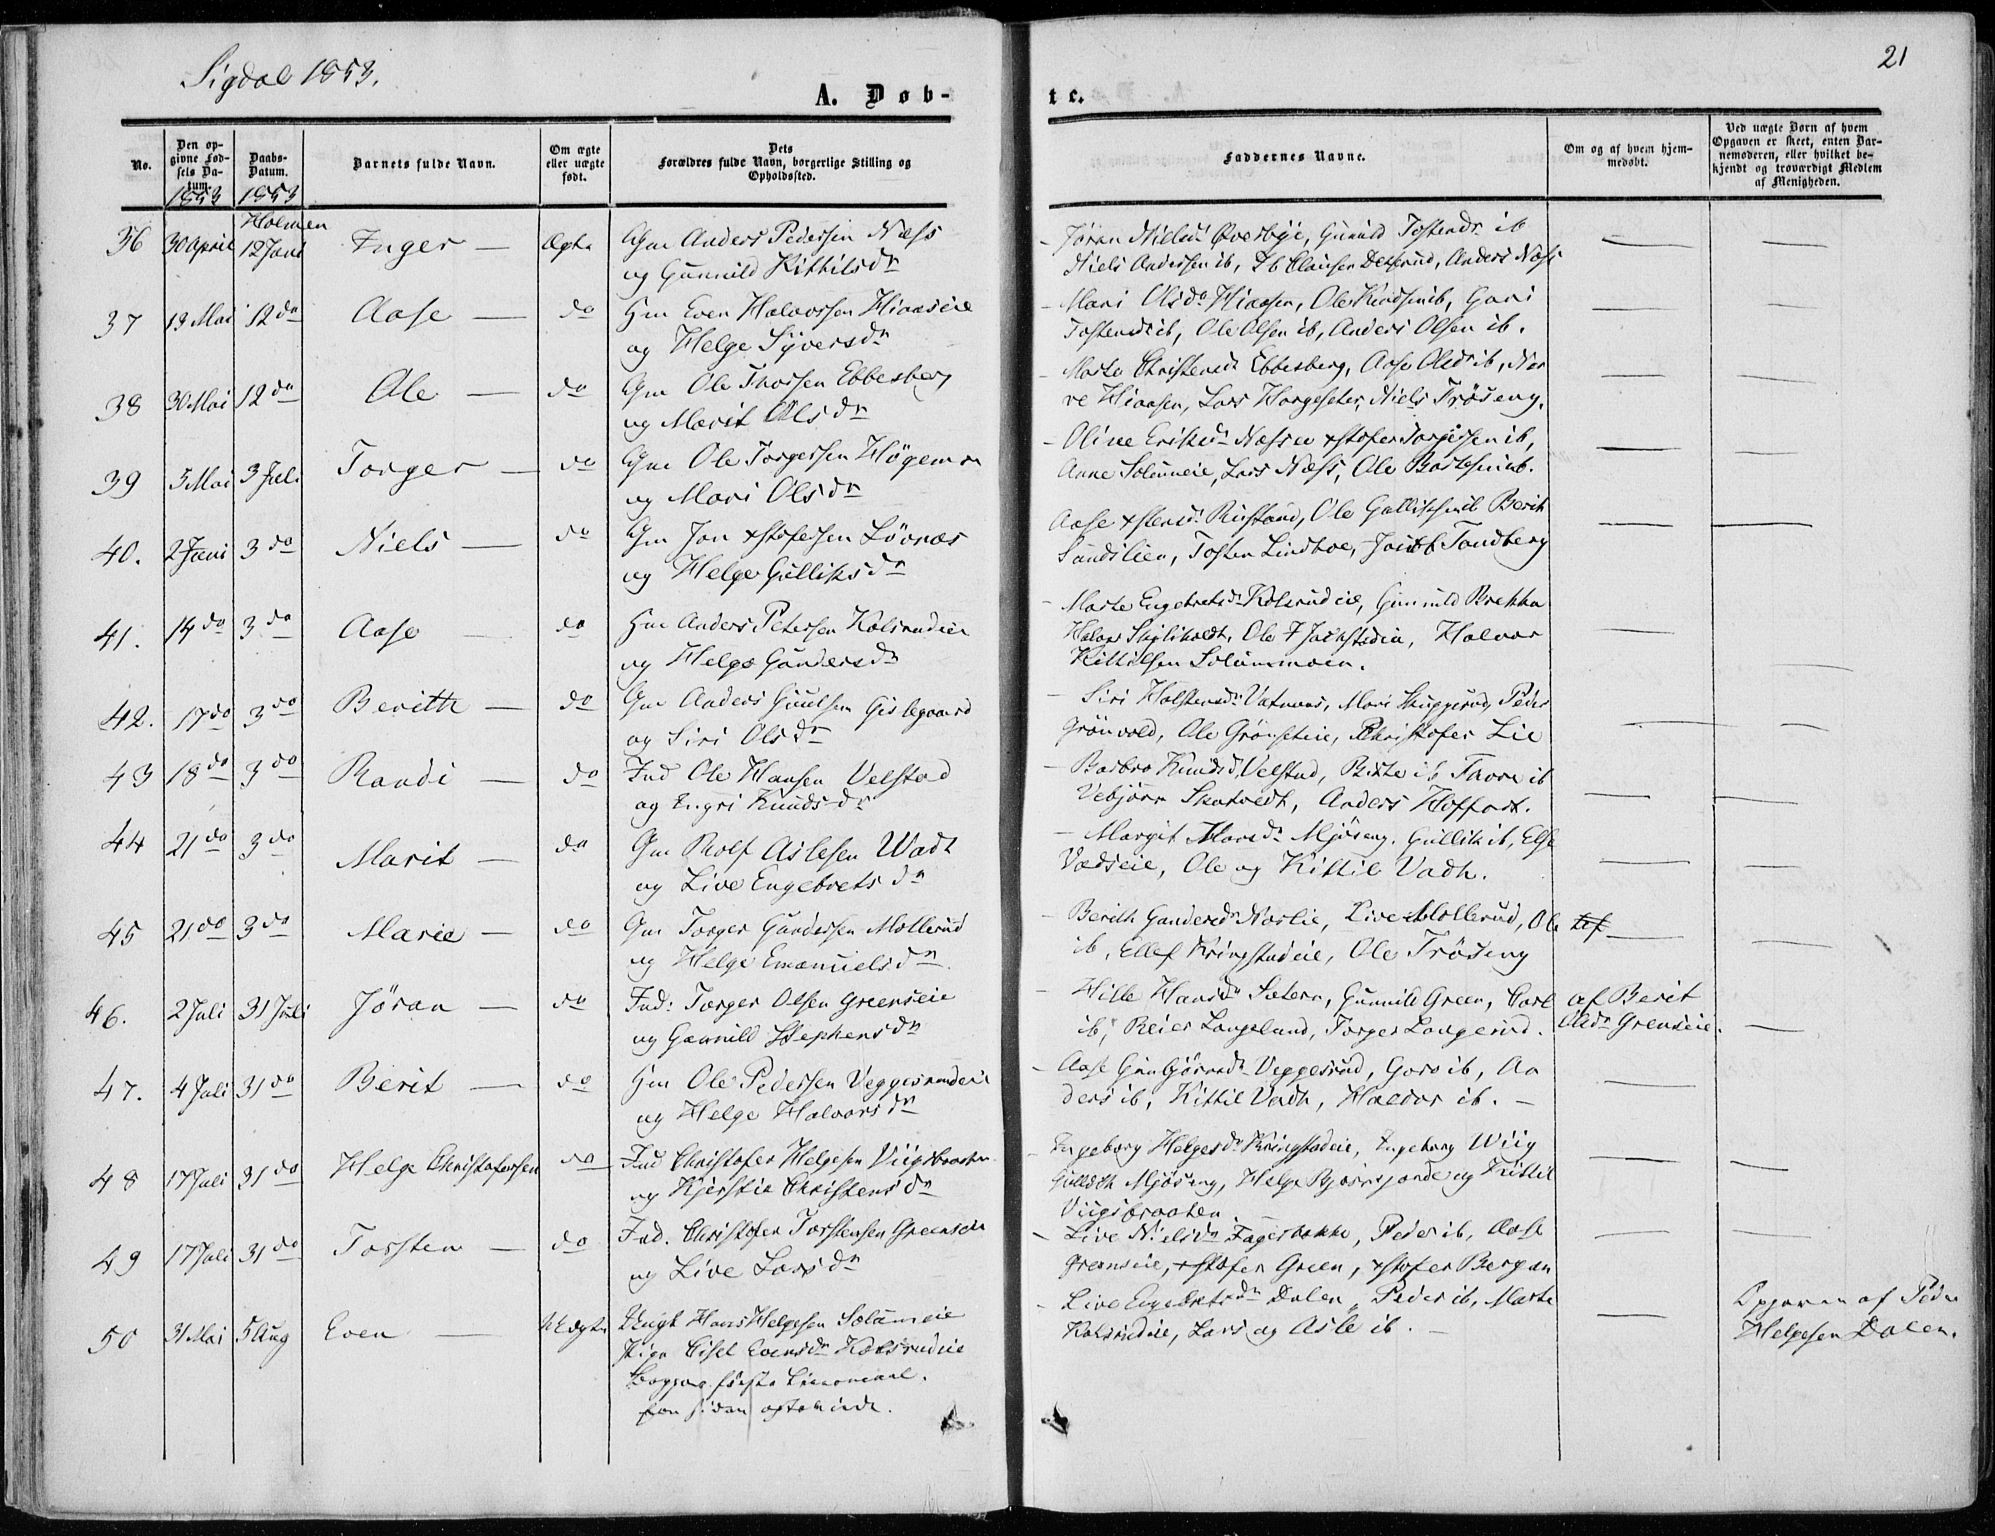 Sigdal 1853.
21
A. Døb-
te.
No.
Den opgivne Fødsels Datum.
1853
Daabs-Datum.
1853
Barnets fulde Navn.
Om ægte eller uægte født.
Dets Forældres fulde Navn, borgerlige Stilling og Opholdssted.
Faddernes Navne.
Om og af hvem hjemmedøbt.
Ved uægte Børn af hvem Opgaven er skeet, enten Barnemoderen, eller hvilket bekjendt og troværdigt Medlem af Menigheden.
Holmen
36 30 April 12 Juni Inger — Ægte Gm Anders Pedersen Næss
og Gunnild Kittilsdr
Jøran Nielsd Øverbye, Gunild Tostensdr ib
Niels Andersen ib, Anders Næss
37 13 Mai 12 do Aase — do Hm Even Halvorsen Hiaaseie
og Helge Syversdr
Mari Olsdr Hiaasen, Ole Knudsen ib, Guri
Tostensd ib, Ole Olsen ib, Anders Olsen ib.
38 30 Mai 12 do Ole — do Gm Ole Thorsen Ebbesberg
og Marit Olsdr
Marte Christensd Ebbesberg, Aase Olsdr ib, Nar
ve Hiaasen, Lars Horgeseter, Niels Trøseng.
39 5 Mai 3 Juli Torger — do Gm Ole Torgersen Høgemo
og Mari Olsdr
Oline Eriksdr Næsseie xstofer Torgersen ib,
Anne Solumeie, Lars Næss, Ole ib.
40. 2 Juni 3 do Niels — do Gm Jon xstofersen Løvnæs
og Helge Gulliksdr
Aase xstensd Rustand, Ole Gulliksen ib Berit
Sandslien, Tosten Lindboe, Jacob Tandberg
41. 14 do 3 do Aase — do Hm Anders Petersen Kolsrudeie
og Helge Gundersdr
Marte Engebretsdr Kolsrudeie, Gunnild Brekka
Halvor Skjelkvedt, Ole Halvor
Kittilsen Solummoen.
42. 17 do 3 do Berith — do Gm Anders Guulsen Gislegaard
og Siri Olsdr
Siri Holstensdr Vatnaas, Mari Skuggerud, Peder
Grønvold, Ole Grønseteie, Christofer Lie
43 18 do 3 do Randi — do Ind Ole Hansen Velstad
og Ingri Knudsdr
Barbro Knudsd Velstad, Birte ib Thore ib
Vebjørn Skatvedt, Anders Hoffart.
44 21 do 3 do Marit — do Gm Rolf Aslesen Wadt
og Live Engebretsdr
Margit Larsdr Mjøseng. Gullik ib, Else
Vadseie, Ole og Kittil Vadh.
45 21 do 3 do Marie — do Gm Torger Gundersen Mollerud
og Helge Emanuelsdr.
Berith Gundersdr Norlie, Live Mollerud, Ole
ib, Ellef Kringstadeie, Ole Trøseng
46. 2 Juli 31 Juli Jøran — do Ind: Torger Olsen Greenseie
og Gunnild Stephensdr
Hille Hansdr Sætern, Gunnild Green, Carl
ib, Reier Langeland, Torger Langerud.
af Berit
Olsdr Grenseie.
47. 4 Juli 31 do Berit — do Hm Ole Pedersen Veggesrudeie
og Helge Halvorsdr
Aase Gundr Veggesrud, Goro ib, An
ders ib, Kittil Vadh, Haldor ib. —
48 17 Juli 31 do Helge Christofersen do Ind Christofer Helgesen Viigsbraaten
og Kjerstie Christensdr
Ingeborg Helgesdr Kringstadeie, Ingeborg Wiig
Gullik Mjøseng, Helge og Kittil
Viigsbraaten
49 17 Juli 31 do Torsten — do Ind. Christofer Torstensen Greenseie
og Live Larsdr
Live Nielsdr Fagerbakke, Peder ib, Aase
Grenseie, xstofer Green, xstofer Bergan
50 31 Mai 5 Aug Even — Uægte Ungk Hans Helgesen Solumeie
Pige Sisel Evensdr Kolsrudeie
Begges første Leiermaal.
Live Engebretsdr Dalen, Peder ib, Marte
Kolsrudeie, Lars og Asle ib. —
Opgaven af Peder
Helgesen Dalen.